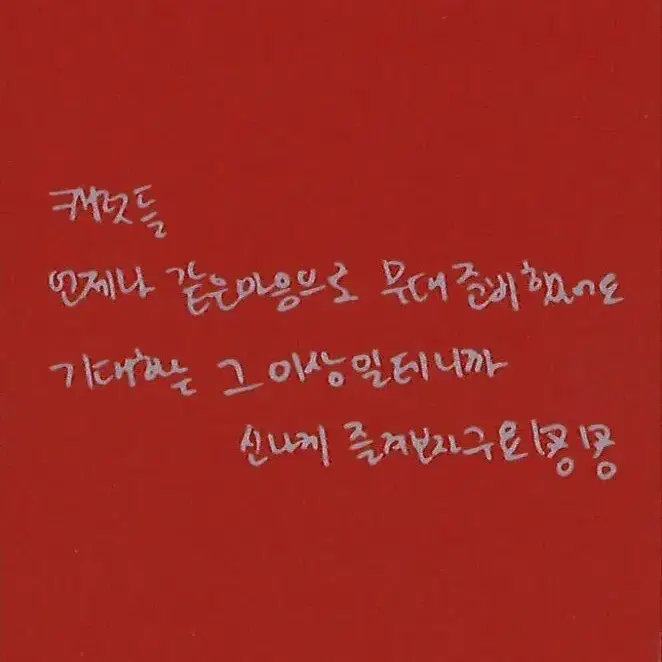 캐럿들
언제나 같은마음으로 무대 준비했어요
기대하는 그 이상일테니까
신나게 즐겨보자구요!쿵!쿵